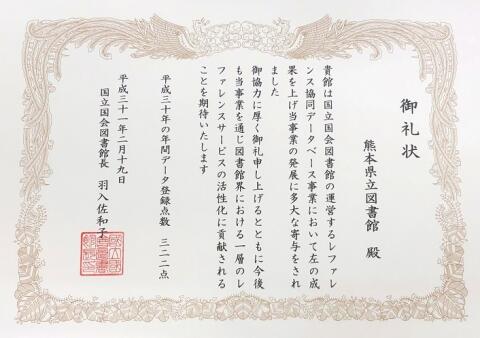 御礼状
熊本県立図書館 殿
貴館は国立国会図書館の運営するレファレ
ンス協同データベース事業において左の成
果を上げ当事業の発展に多大な寄与をされ
ました
御協力に厚く御礼申し上げるとともに今後
も当事業を通じ図書館界における一層のレ
ファレンスサービスの活性化に貢献される
ことを期待いたします
平成三十年の年間データ登録点数 三二二点
平成三十一年二月十九日
国立国会図書館長 羽入佐和子